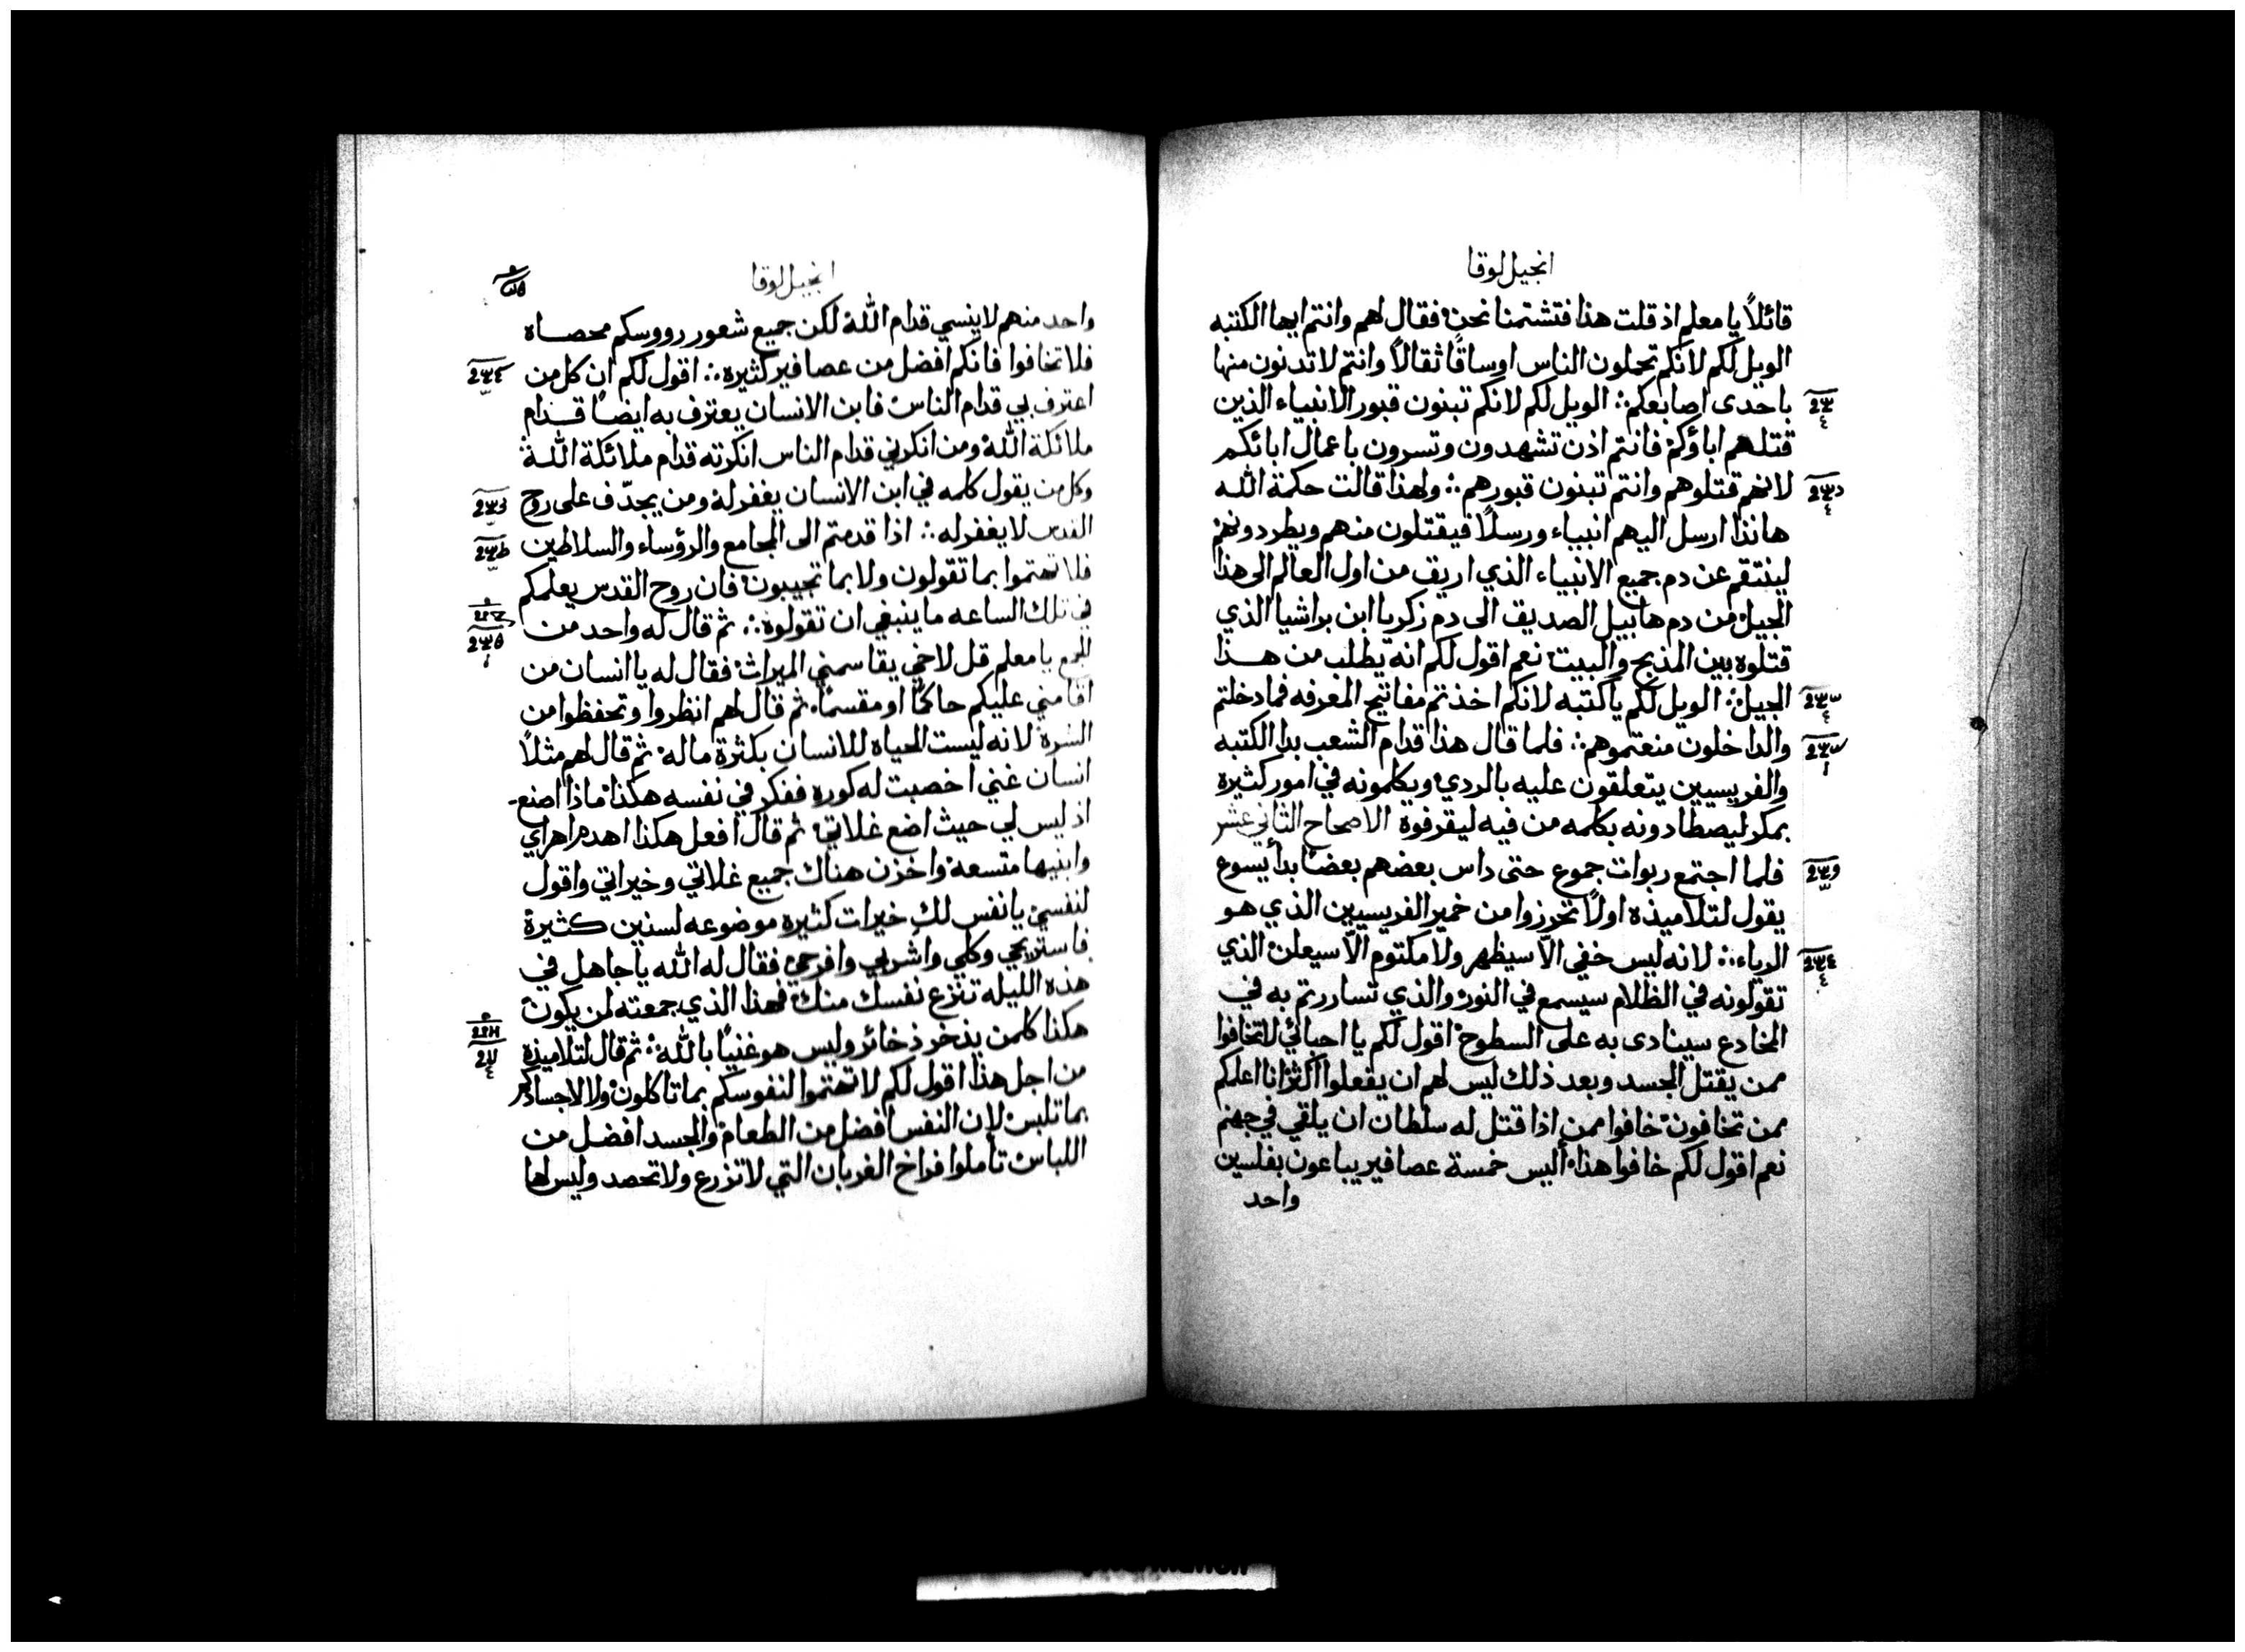 انجيل لوقا
قائلاً يا معلم اذ قلت هذا فتشتمنا نحن فقال لهم وانتم ايها الكتبه
الويل لكم لانكم تحملون الناس اوساقًا ثقالاً وانتم لا تدنون منها
باحدى اصابعكم ∴ الويل لكم لانكم تبنون قبور الانبياء الذين
قتلهم اباؤكم فانتم اذن تشهدون وتسرون باعمال ابائكم
لانهم قتلوهم وانتم تبنون قبورهم ∴ ولهذا قالت حكمة الله
هانذا ارسل اليهم انبياء ورسلاً فيقتلون منهم ويطردونهم
لينتقم عن دم جميع الانبياء الذي اريق من اول العالم الى هذا
الجيل من دم هابيل الصديق الى دم زكريا ابن براشيا الذي
قتلوه بين المذبح والبيت نعم اقول لكم انه يطلب من هذا
الجيل ∴ الويل لكم يا كتبه لانكم اخذتم مفاتيح المعرفه فما دخلتم
والداخلون منعتموهم ∴ فلما قال هذا قدام الشعب بدا الكتبه
والفريسيين يتعلقون عليه بالردي ويكلمونه في امور كثيرة
بمكر ليصطادونه بكلمه من فيه ليقرفوه الاصحاح الثاني عشر
فلما اجتمع ربوات جموع حتى داس بعضهم بعضًا بدأ يسوع
يقول لتلاميذه اولاً تحرزوا من خمير الفريسيين الذي هو
الرياء ∴ لانه ليس خفي الّا سيظهر ولا مكتوم الّا سيعلن الذي
تقولونه في الظلام سيسمع في النور والذي تساررتم به في
المخادع سينادى به على السطوح اقول لكم يا احبائي لا تخافوا
ممن يقتل الجسد وبعد ذلك ليس لهم ان يفعلوا اكثر انا اعلمكم
ممن تخافون خافوا ممن اذا قتل له سلطان ان يلقي في جهنم
نعم اقول لكم خافوا هذا أليس خمسة عصافير يباعون بفلسين
واحد
انجيل لوقا
واحد منهم لا ينسي قدام الله لكن جميع شعور رووسكم محصاه
فلا تخافوا فانكم افضل من عصافير كثيره ∴ اقول لكم ان كل من
اعترف بي قدام الناس فابن الانسان يعترف به ايضًا قدام
ملائكة الله ومن انكرني قدام الناس انكرته قدام ملائكة الله
وكل من يقول كلمه في ابن الانسان يغفر له ومن يجدّف على روح
القدس لا يغفر له ∴ اذا قدمتم الى المجامع والرؤساء والسلاطين
فلا تهتموا بما تقولون ولا بما تجيبون فان روح القدس يعلمكم
في تلك الساعه ما ينبغي ان تقولوه ∴ ثم قال له واحد من
الجمع يا معلم قل لاخي يقاسمني الميراث فقال له يا انسان من
اقامني عليكم حاكمًا او مقسمًا ثم قال لهم انظروا وتحفظوا من
الشره لانه ليست الحياه للانسان بكثرة ماله ثم قال لهم مثلاً
انسان غني اخصبت له كوره ففكر في نفسه هكذا ماذا اصنع
اذ ليس لي حيث اضع غلاتي ثم قال افعل هكذا اهدم اهراي
وابنيها متسعه واخزن هناك جميع غلاتي وخيراتي واقول
لنفسي يا نفس لك خيرات كثيره موضوعه لسنين كثيرة
فاستريحي وكلي واشربي وافرحي فقال له الله يا جاهل في
هذه الليله تنزع نفسك منك فهذا الذي جمعته لمن يكون
هكذا كلمن يذخر ذخائر وليس هو غنيًا بالله ∴ ثم قال لتلاميذه
من اجل هذا اقول لكم لا تهتموا لنفوسكم بما تاكلون ولا لاجسادكم
بما تلبس لان النفس افضل من الطعام والجسد افضل من
اللباس تأملوا فراخ الغربان التي لا تزرع ولا تحصد وليس لها